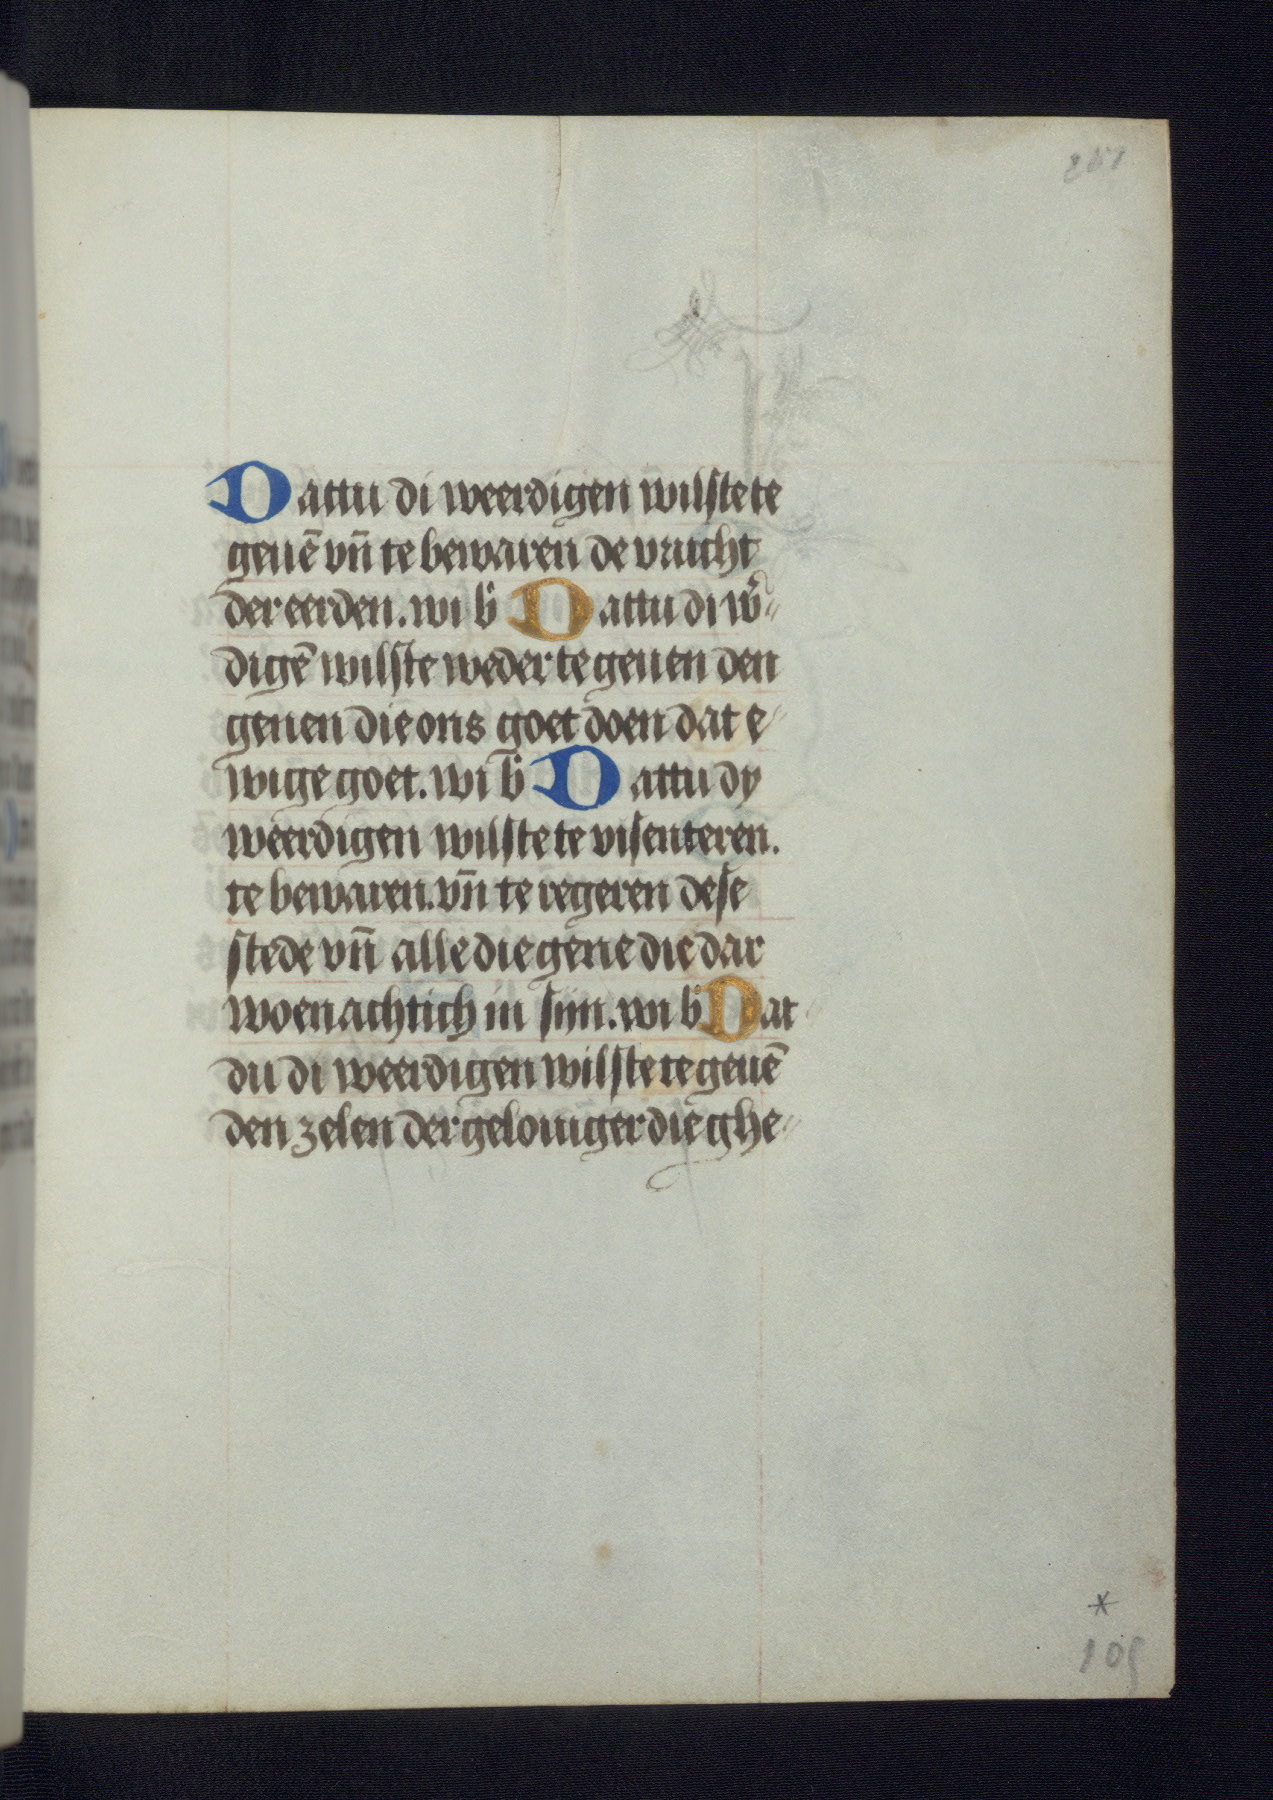 Dattu di weerdigen wilste te
geuē vn̄ te bewaren de vrucht
der eerden. wi b̄ Dattu di w̄
digē wilste weder te geuen den
genen die ons goet doen dat e
wige goet. wi b̄ Dattu dy
weerdigen wilste te visenteren.
te bewaren. vn̄ te regeren dese
stede vn̄ alle die gene die dar
woenachtich in sijn. wi b̄ Dat
du di weerdigen wilste te geuē
den zelen der gelouiger die ghe
*
105